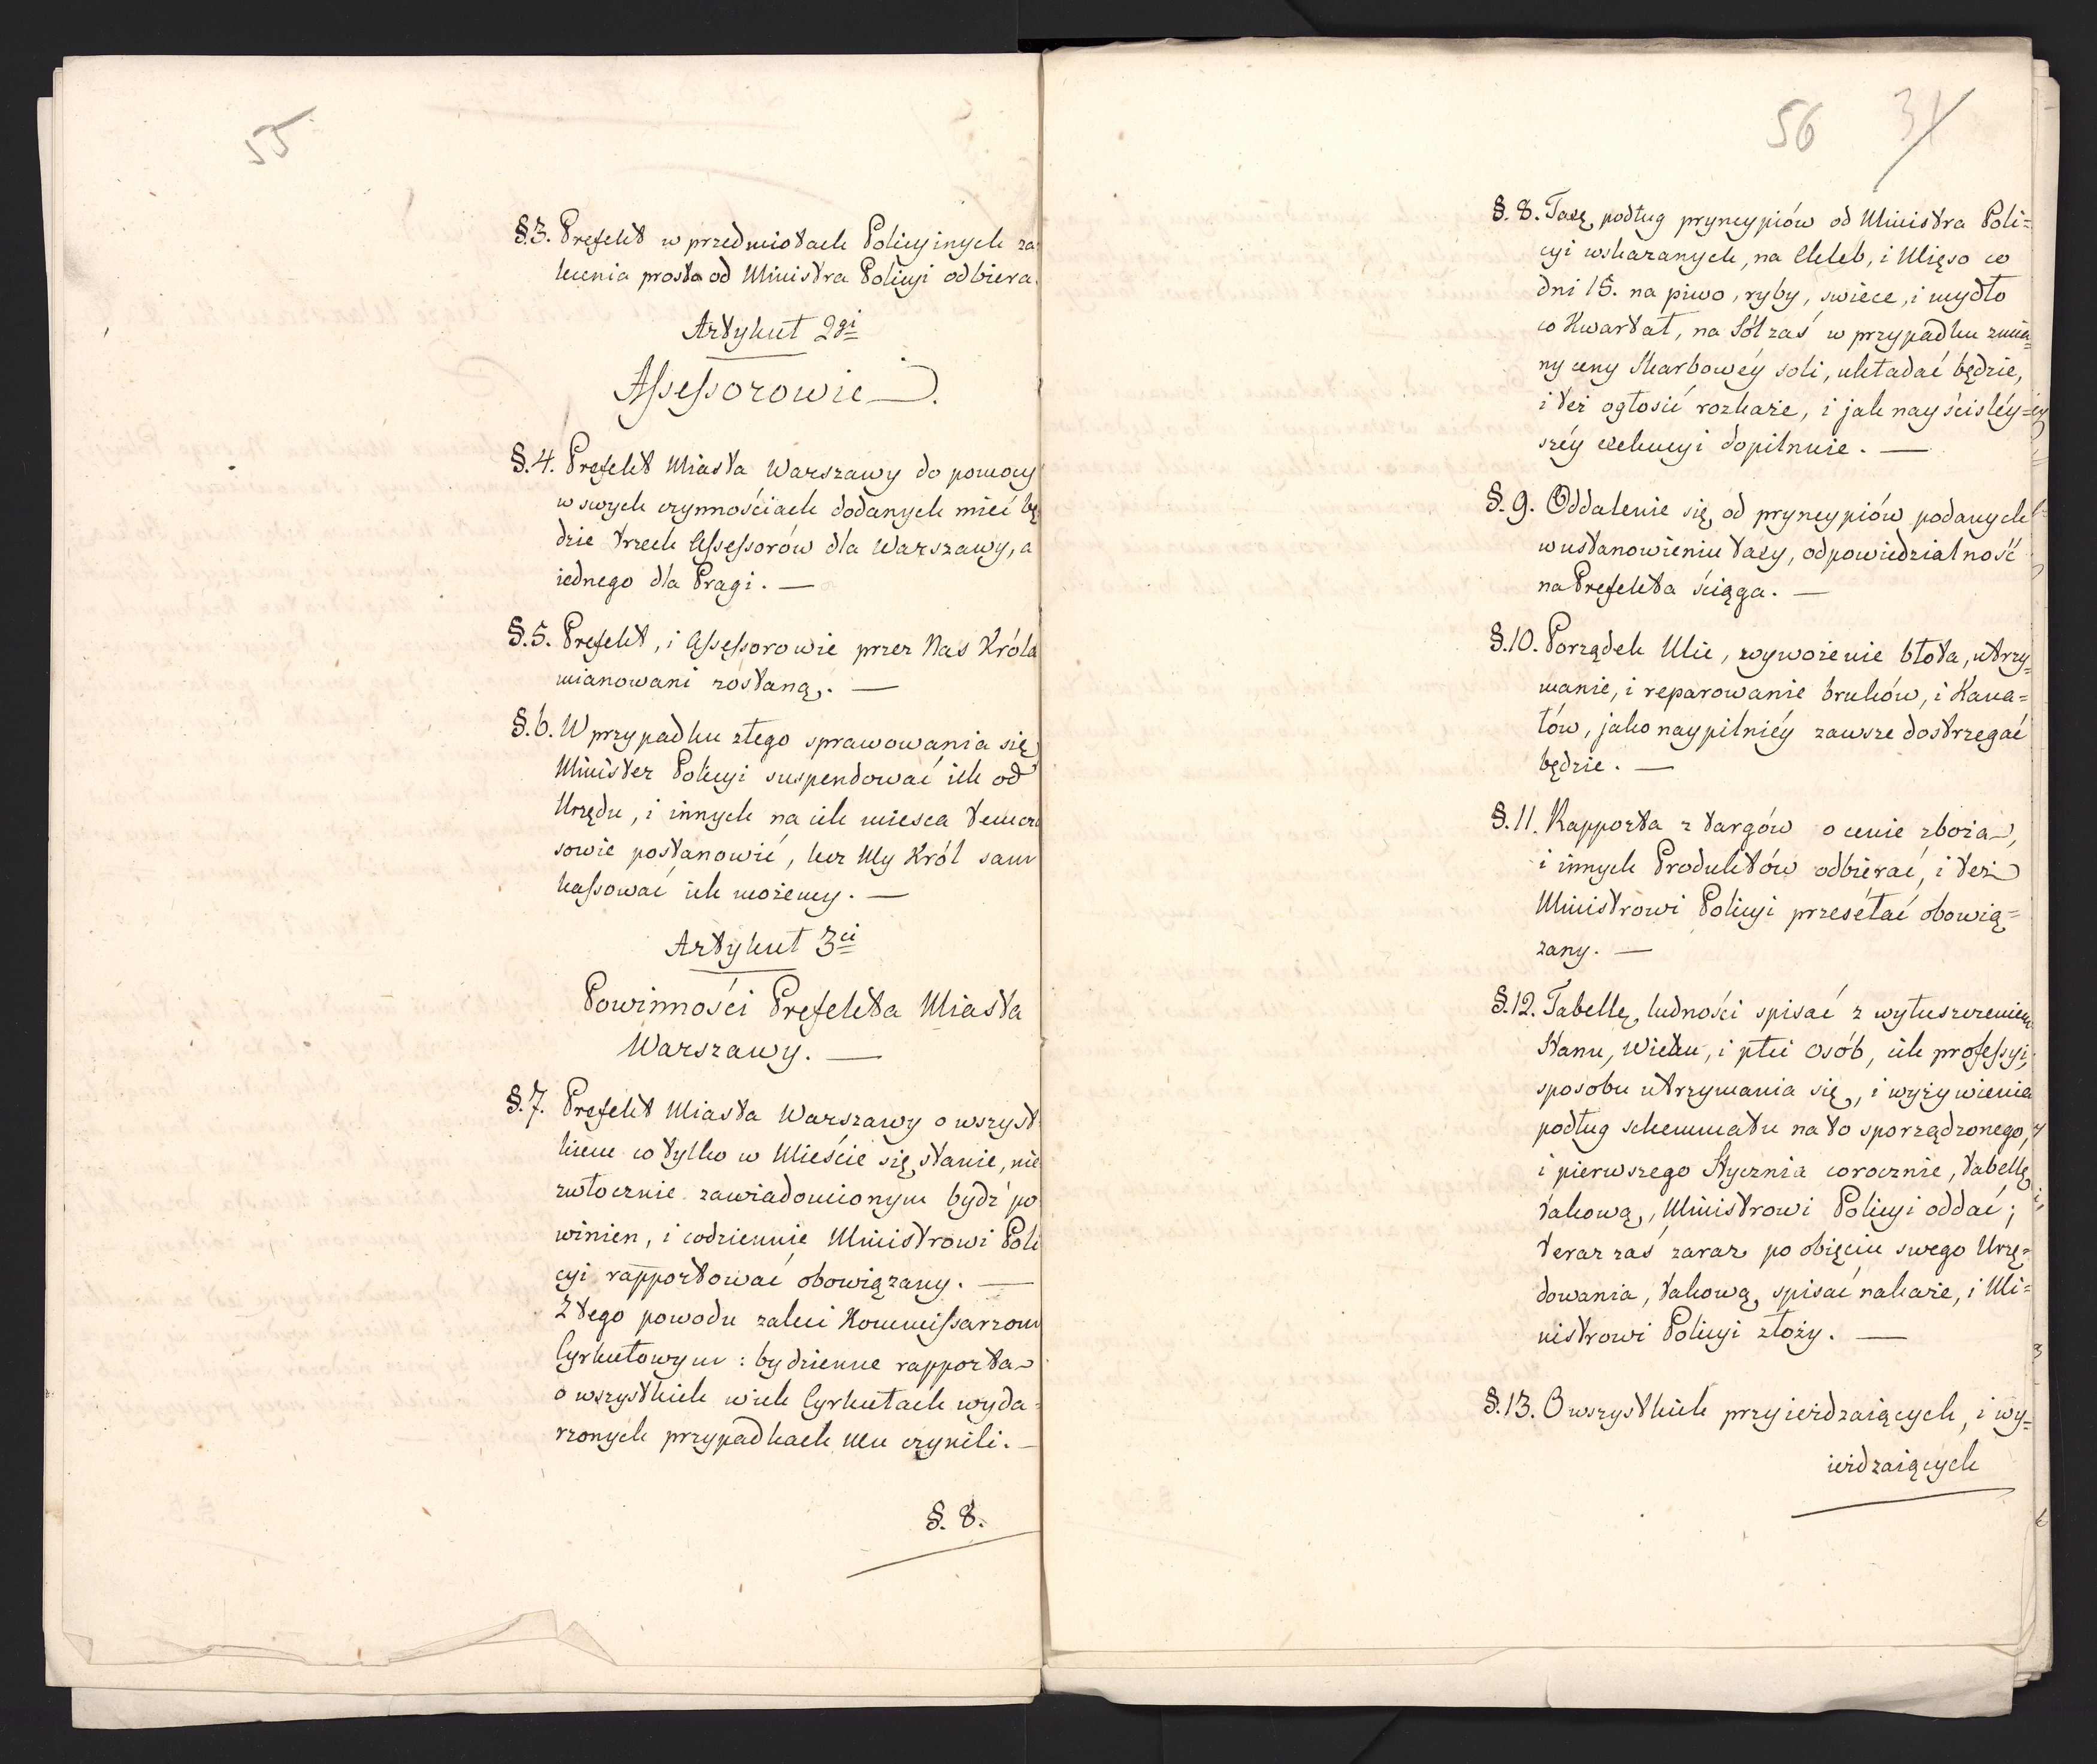 55
§.3. Prefekt w przedmiotach Policyinych za
lecenia prosto od Ministra Policyi odbiera.
Artykuł 2gi
Assessorowie.
§.4. Prefekt Miasta Warszawy do pomocy
w swych czynnościach dodanych mieć bę
dzie trzech Assessorów dla Warszawy, a
iednego dla Pragi. —
§.5. Prefekt, i Assessorowie przez Nas Króla
mianowani zostaną. —
§.6. W przypadku złego sprawowania się
Minister Policyi suspendować ich od
Urzędu, i innych na ich miesca temcza
sowie postanowić, lecz My Król sam
kassować ich możemy. —
Artykuł 3ci
Powinności Prefekta Miasta
Warszawy. —
§.7. Prefekt Miasta Warszawy o wszyst
kiem co tylko w Mieście się stanie, nie
zwłocznie zawiadomionym bydź po
winien, i codziennie Ministrowi Poli
cyi rapportować obowiązany. —
Z tego powodu zaleci Kommissarzom
Cyrkułowym: by dzienne rapporta
o wszystkich w ich Cyrkułach wyda-
rzonych przypadkach mu czynili. —
§. 8.
56 31
§. 8. Taxę podług pryncypiów od Ministra Poli=
cyi wskazanych, na Chleb, i Mięso co
dni 15. na piwo, ryby, swiece, i mydło
co Kwartał, na Sól zaś w przypadku zmia=
ny ceny Skarbowéy soli, układać będzie,
i też ogłosić rozkaże, i jak nayściśléy=
széy exekucyi dopilnuie. —
§. 9. Oddalenie się od pryncypiów podanych
w ustanowieniu taxy, odpowiedzialność
na Prefekta ściąga. —
§.10. Porządek Ulic, wywożenie błota, utrzy=
manie, i reparowanie bruków, i Kana=
łów, jako naypilniéy zawsze dostrzegać
będzie. —
§.11. Rapporta z targów o cenie zboża,
i innych Produktów odbierać, i też
Ministrowi Policyi przesełać obowią=
zany. —
§.12. Tabellę ludności spisać z wyłuszczeniem
Stanu, Wieku, i płci Osób, ich professyi,
sposobu utrzymania się, i wyżywienia
podług schemmatu na to sporządzonego,
i pierwszego Stycznia corocznie, tabellę
takową, Ministrowi Policyi oddać;
teraz zaś zaraz po obięciu swego Urzę=
dowania, takową spisać nakaże, i Mi=
nistrowi Policyi złoży. —
§.13. O wszystkich przyieżdzaiących, i wy=
ieżdzaiących